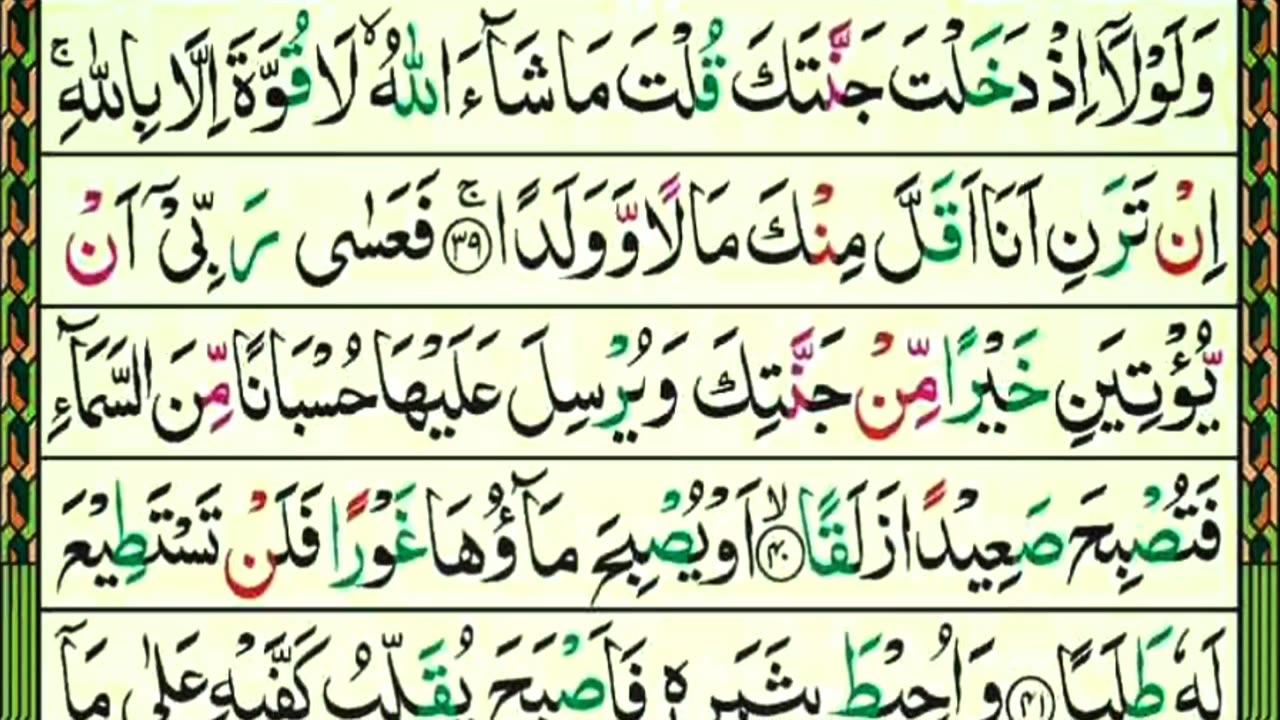 وَلَوْلَاۤ اِذْ دَخَلْتَ جَنَّتَكَ قُلْتَ مَا شَآءَ اللّٰهُ ۙ لَا قُوَّةَ اِلَّا بِاللّٰهِ ۚ
اِنْ تَرَنِ اَنَا اَقَلَّ مِنْكَ مَالًا وَّوَلَدًا ۚ ﴿۳۹﴾ فَعَسٰی رَبِّیْۤ اَنْ
یُّؤْتِیَنِ خَیْرًا مِّنْ جَنَّتِكَ وَیُرْسِلَ عَلَیْهَا حُسْبَانًا مِّنَ السَّمَآءِ
فَتُصْبِحَ صَعِیْدًا زَلَقًا ۙ ﴿۴۰﴾ اَوْ یُصْبِحَ مَآؤُهَا غَوْرًا فَلَنْ تَسْتَطِیْعَ
لَهٗ طَلَبًا ﴿۴۱﴾ وَاُحِیْطَ بِثَمَرِهٖ فَاَصْبَحَ یُقَلِّبُ كَفَّیْهِ عَلٰی مَاۤ